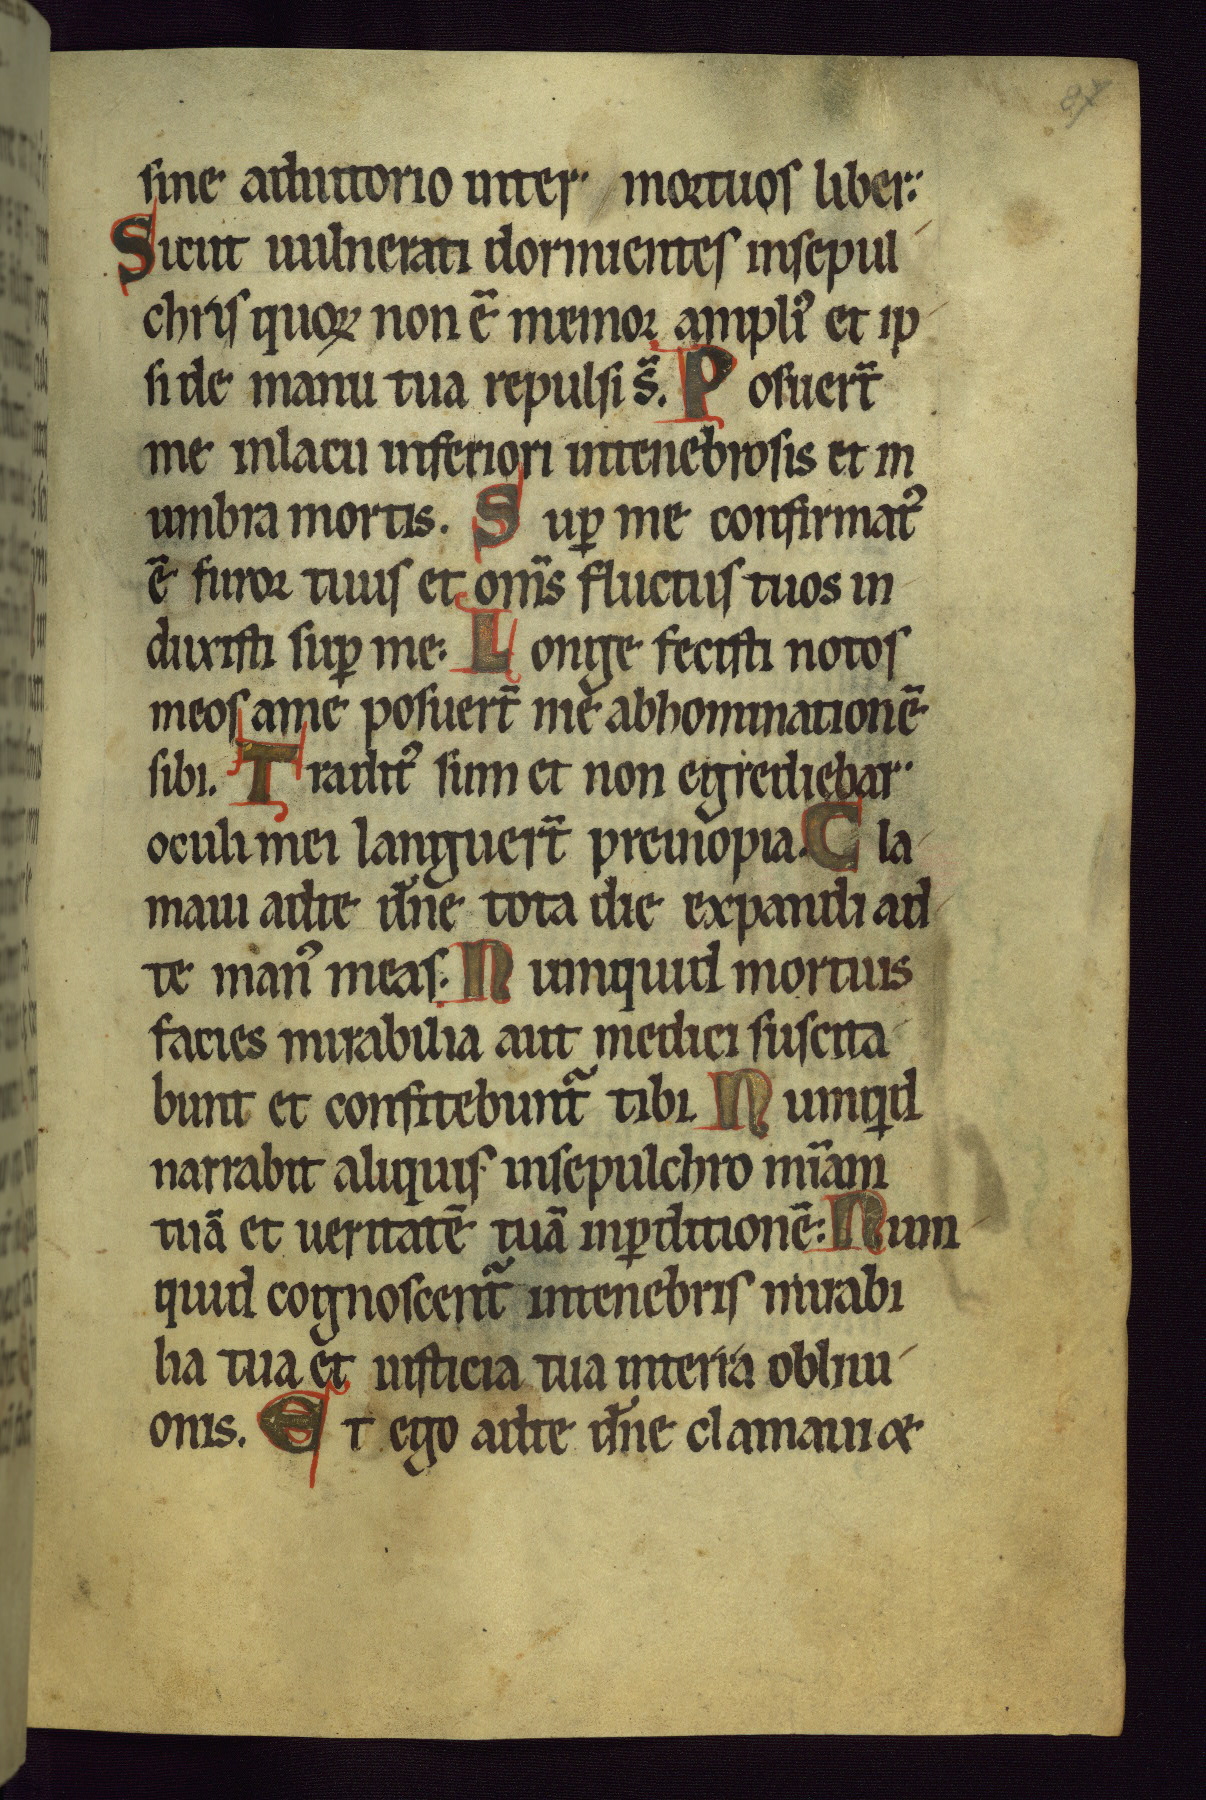 sine adiutorio inter mortuos liber:
Sicut uulnerati dormientes insepul
chris quoꝝ non ē memor ampliꝰ et ip
si de manu tua repulsi s̄. Posuert̄
me inlacu inferiori intenebrosis et in
umbra mortis. Suꝑ me confirmatꝰ
ē furor tuus et om̄s fluctus tuos in
duxisti suꝑ me: Longe fecisti notos
meos ame posuert̄ me abhominationē
sibi. Traditꝰ sum et non egrediebar
oculi mei languert̄ pre inopia. Cla
maui adte dn̄e tota die expandi ad
te manꝰ meas. Numquid mortuis
facies mirabilia aut medici suscita
bunt et confitebunt᷑ tibi Numqid
narrabit aliquis insepulchro mīam
tuā et ueritatē tuā inꝑditionē: Num
quid cognoscent᷑ intenebris mirabi
lia tua et iusticia tua interra obliui
onis. Et ego adte dn̄e clamaui &